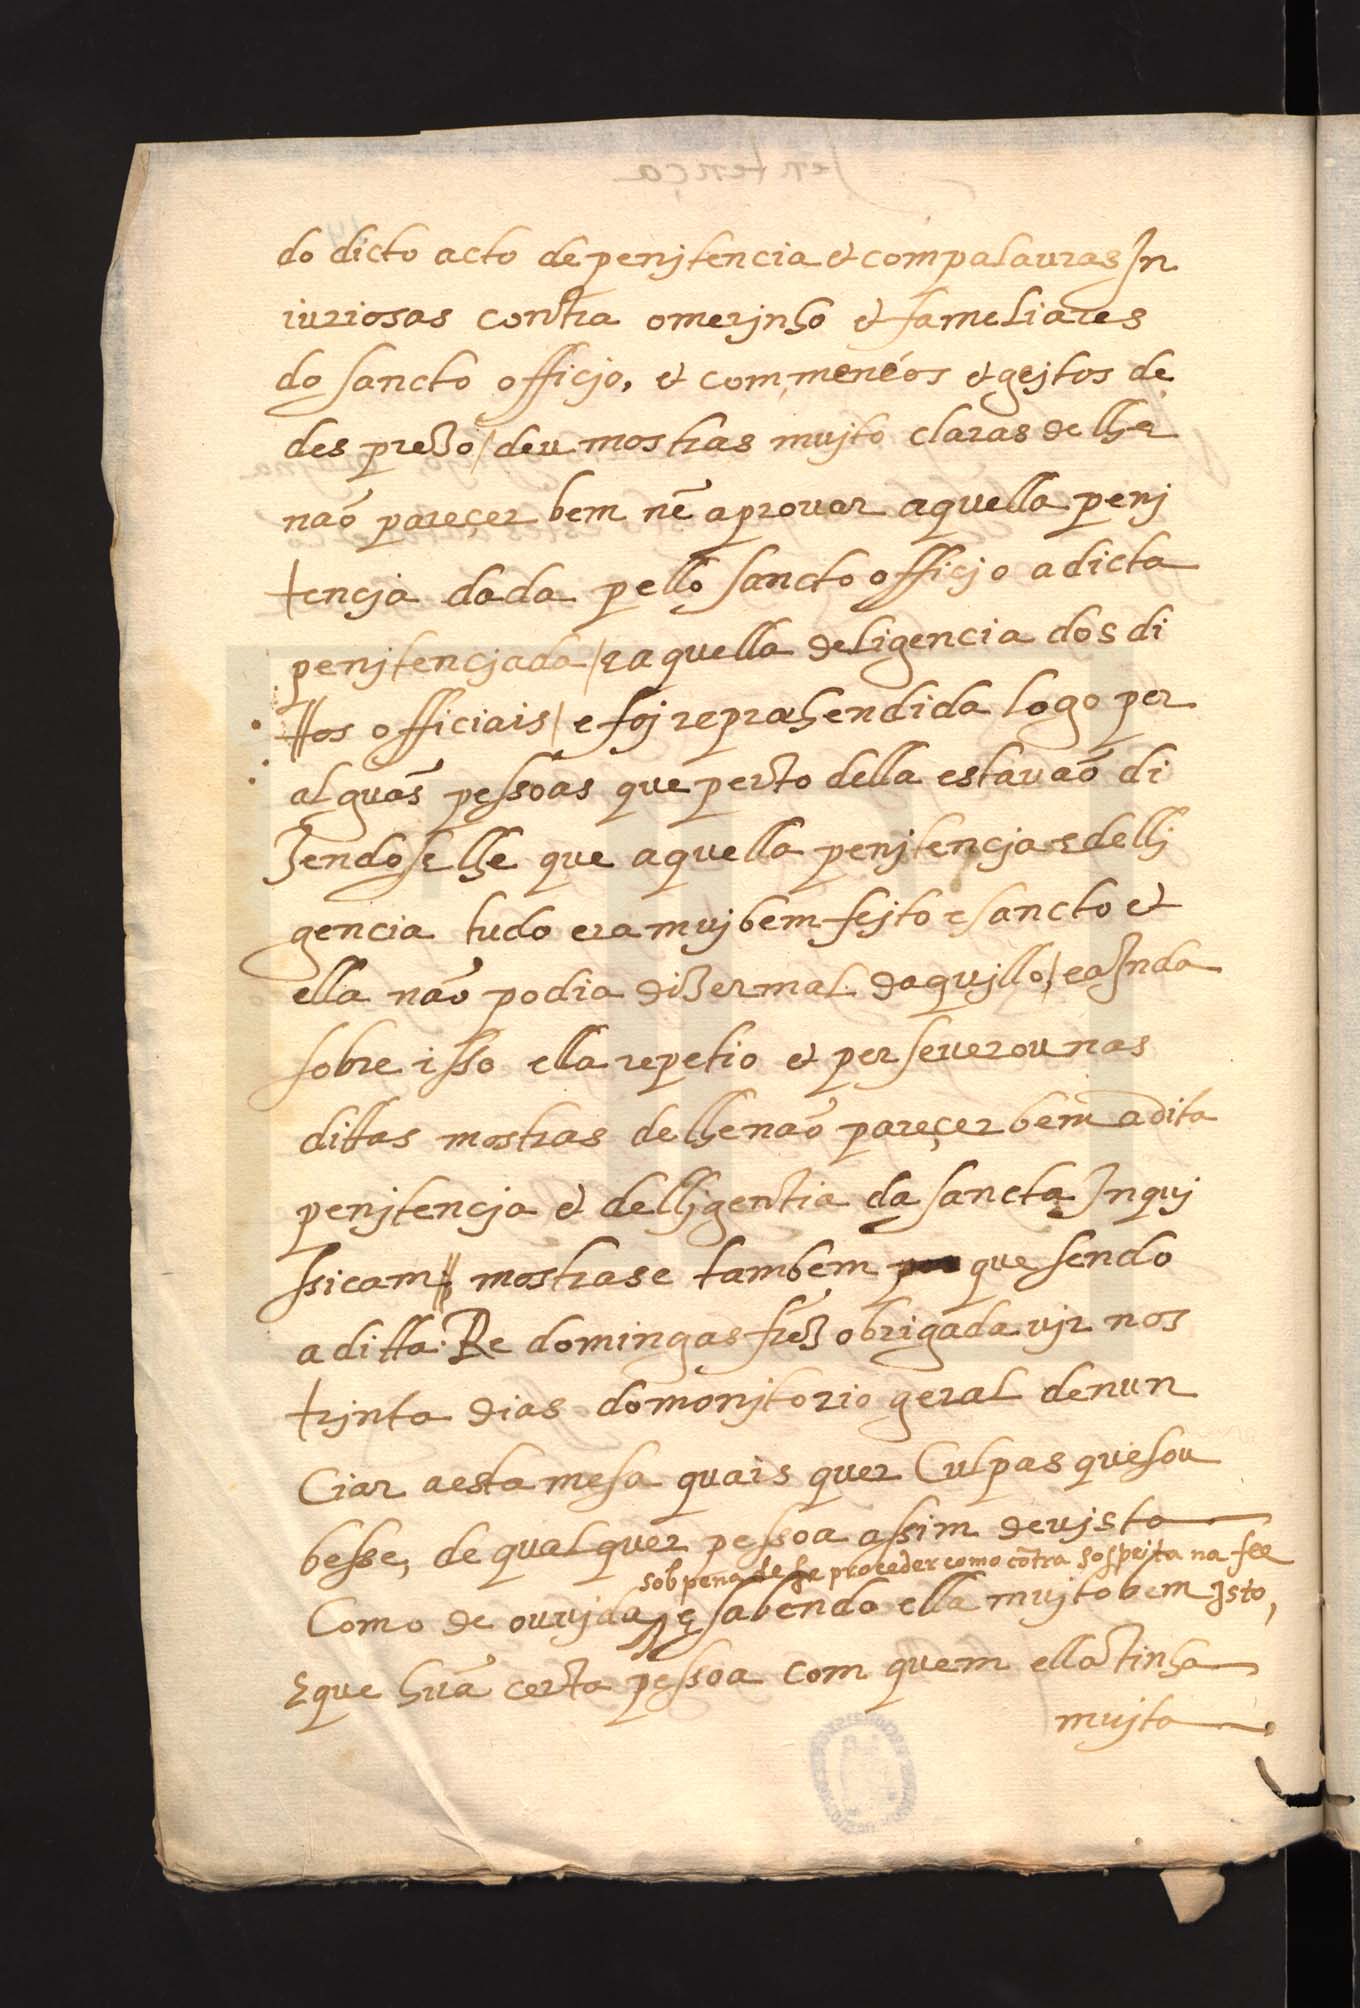 do dicto acto de penjtencia & com palauras In
iuriosas contra o merjnho & fameliares
do sancto officjo, & com menéos & gejtos de
des prezo / deu mostras mujto claras de lhe
não pareçer bem nẽ aprouar aquella penj
tencja dada pello sancto officjo a dicta
penjtencjada / e aquella deligencia dos di
ttos officiais / e foj reprahendida logo per
alguãs pessoas que perto della estauaõ di
zendoselhe que aquella penjtencja e dellj
gencia tudo era muj bem fejto e sancto &
ella naõ podia dizer mal daqujllo / e aInda
sobre isso ella repetio & perseuerou nas
dittas mostras de lhe naõ pareçer bem a dita
penjtencja & delljgentia da sancta Inquj
ssicam // mostrase tambem que sendo
a ditta Re domingas frz̃ obrigada vjr nos
trjnta dias do monjtorio geral denun
Ciar a esta mesa quais quer Culpas que sou
besse, de qualquer pessoa assim de vjsta
sob pena de se proceder como cõtra sospejta na fee
Como de ouujda, e sabendo ella mujto bem Isto,
E que huã certa pessoa com quem ella tinha
mujta
Sentença